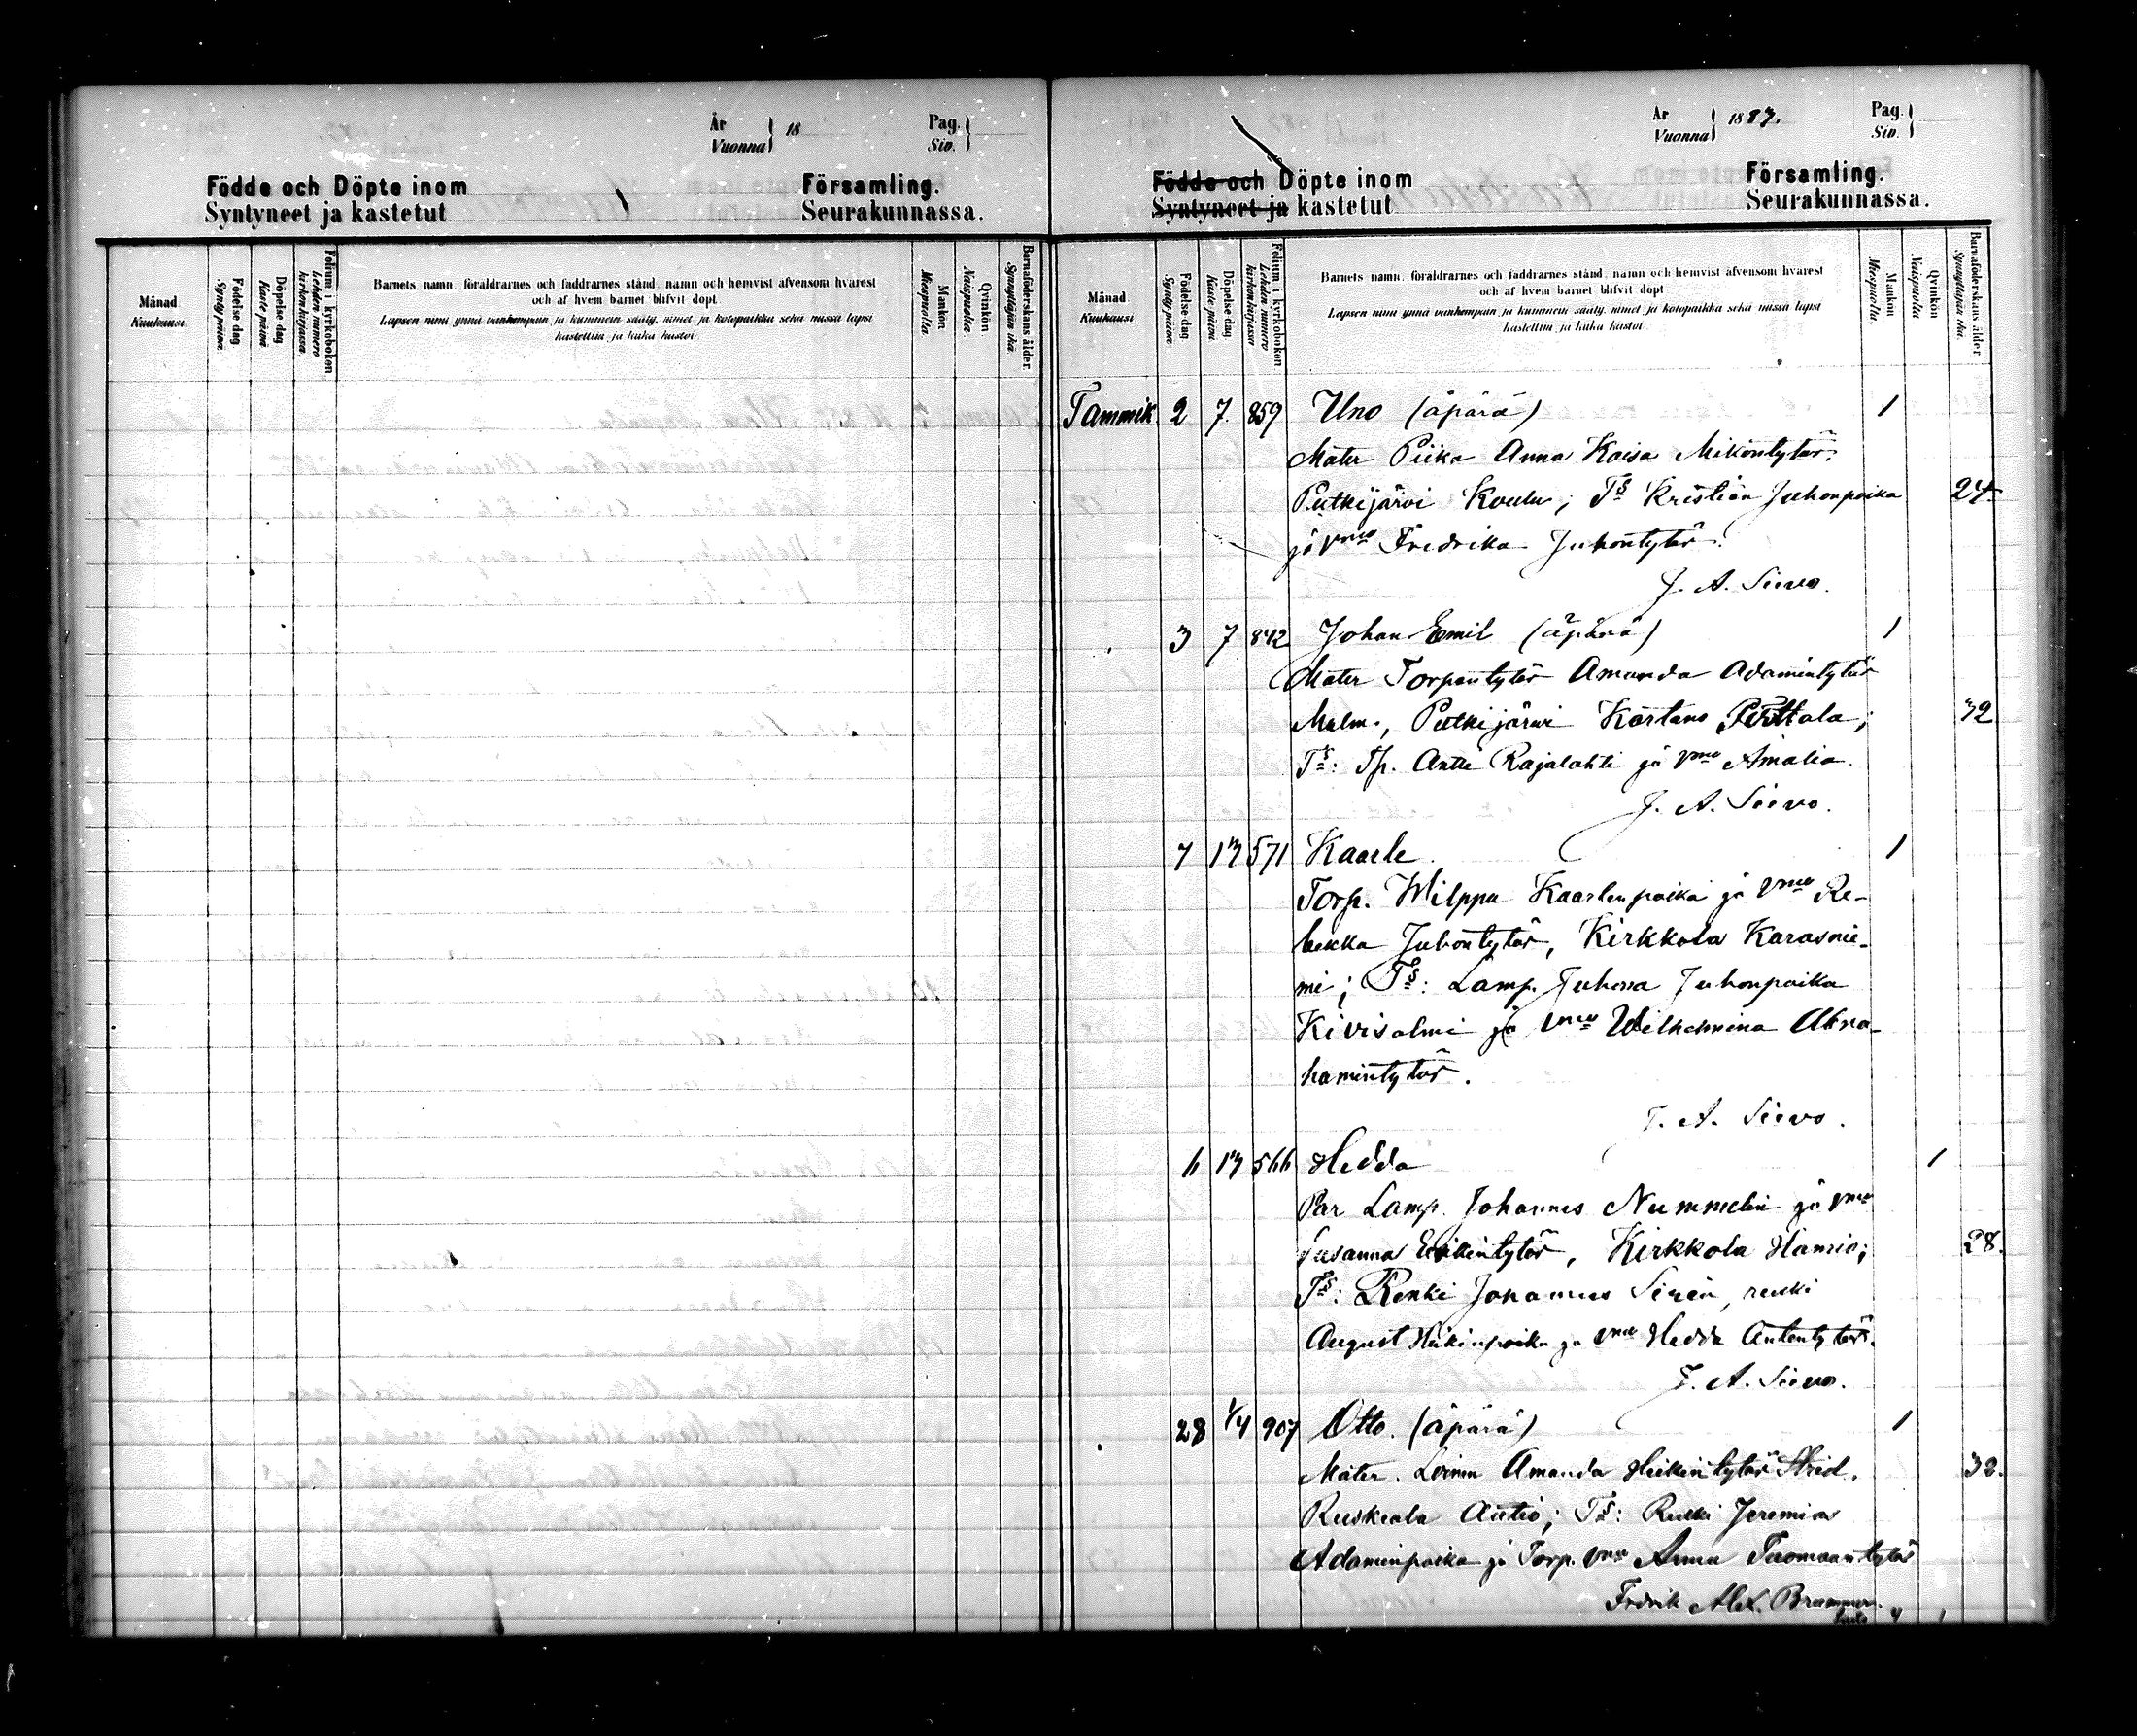 År
Vuonna
18
Pag.
Siv.
Födde och Döpte inom Församling.
Syntyneet ja kastetut Seurakunnassa.
Månad
Kuukausi.
Födelse dag.
Syntypäivä.
Döpelse dag.
Kaste päivä
Folium i kyrkobokon
Lehden numero kirkonkirjassa.
Barnets namn, föräldrarnes och faddrarnes stånd, namn och hemvist äfvensom hvarest
och af hvem barnet blifvit döpt
Lapsen nimi ynnä vanhempain ja kummein sääty, nimet ja kotopaikka sekä missä lapsi
kastettiin ja kuka kastoi.
Mankön
Miespuolia.
Qvinkön
Naispuolia.
Barnaföderskans ålder.
Synnyttäjän ikä.
År
Vuonna
1887.
Pag.
Siv.
Födde och Döpte inom Församling.
Syntyneet ja kastetut Seurakunnassa.
Månad
Kuukausi.
Födelse dag
Syntypäivä.
Döpelse dag.
Kaste päivä
Folium i kyrkobokon
Lehden numero kirkonkirjassa
Barnets namn, föräldrarnes och faddrarnes stånd, namn och hemvist äfvensom hvarest
och af hvem barnet blifvit döpt
Lapsen nimi ynnä vanhempain ja kummein sääty, nimet ja kotopaikka sekä missä lapsi
kastettiin ja kuka kastoi
Mankön
Miespuolia.
Qvinkön
Naispuolia.
Barnaföderskans ålder
Synnyttäjän ikä.
Tammik. 2 7. 859 Uno (äpärä) 1
Mater Piika Anna Kaisa Mikontytär;
Putkijärvi Koulu; Ts Kristian Juhonpoika 24
ja vmo Fredrika Juhontytär.
J. A. Siivo.
3 7 842 Johan Emil (äpärä) 1
Mater Torpantytär Amanda Adamintytär
Malm, Putkijärvi Karstano Perttala; 32
Ts: Tp. Antti Rajalahti ja vmo Amalia.
J. A. Siivo.
7 13 571 Kaarle. 1
Torp. Wilppu Kaarlenpoika ja vmo Re-
bekka Juhontytär, Kirkkola Karasnie-
mi; Ts: Lamp. Juhona Juhonpoika
Kivisalmi ja vmo Wilhelmina Abra-
hamintytär.
J. A. Siivo.
6 13 566 Hedda 1
Par Lamp. Johannes Nummelin ja vmo
Susanna Erikintytär, Kirkkola Hannia; 28.
Ts: Renki Johannes Sirén, renki
August Heikinpoika ja vmo Hedda Antentytär.
J. A. Siivo.
28 1/4 907 Otto. (äpärä) 1
Mater. Loinen Amanda Heikintytär Strid. 32.
Ruskeala Autio; Ts: Renki Jeremias
Adaminpoika ja Torp. vmo Anna Tuomaantytär
Fredrik Alex. Brummer.
4 1